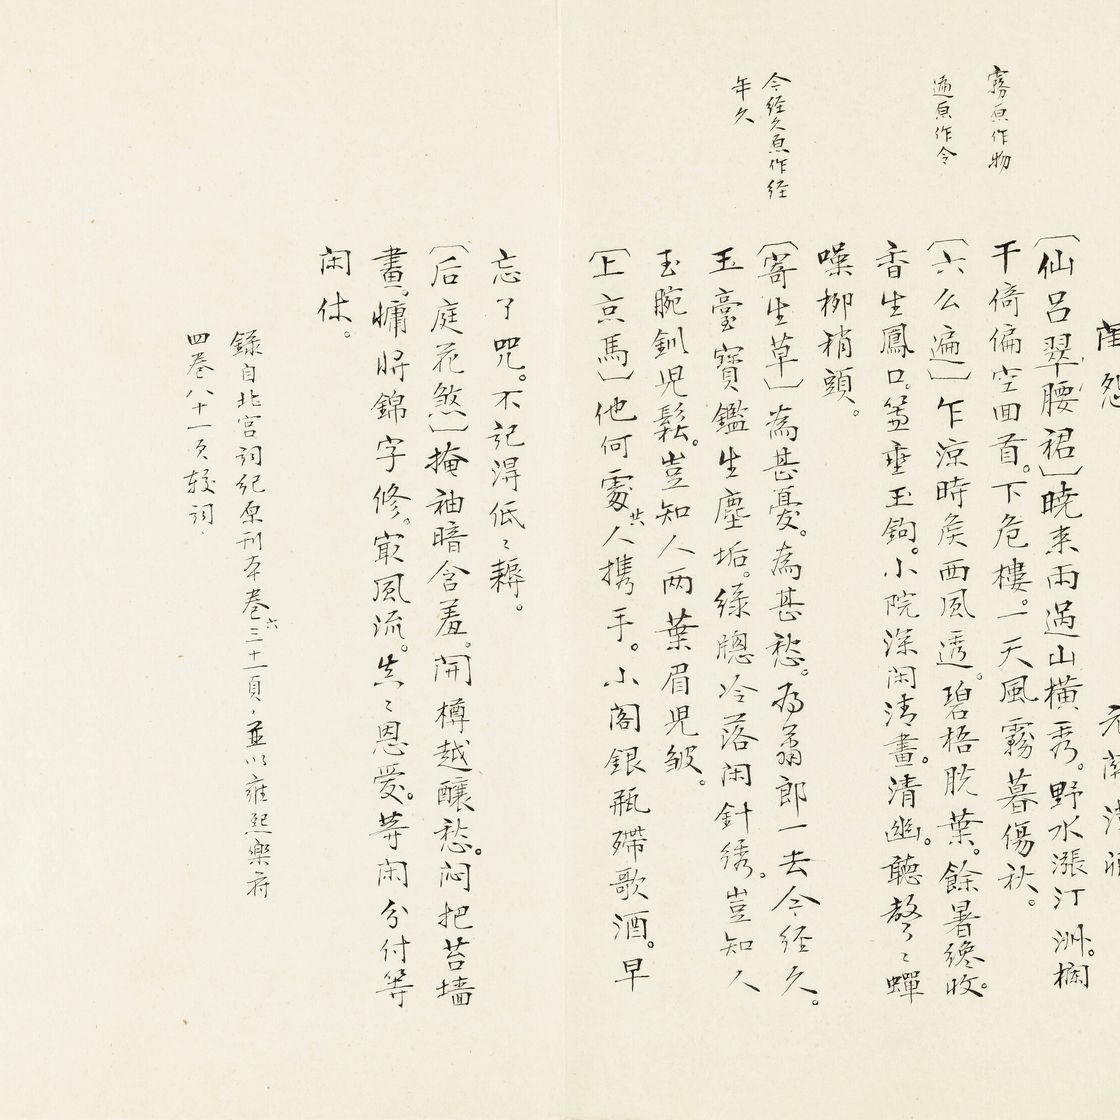 閨怨
霧原作物
遍原作令
今经久原作经
年久
〔仙吕翠腰裙〕曉来雨过山横秀。野水漲汀洲。欄
干倚偏空回首。下危樓。一天風霧暮傷秋。
〔六么遍〕乍涼時矦西風透。碧梧脱葉。餘暑纔收。
香生鳳口。簾垂玉鉤。小院深闲清晝。清幽。聽聲〻蟬
噪柳稍頭。
〔寄生草〕為甚憂。為甚愁。为蕭郎一去今经久。
玉臺寶鑑生塵垢。绿牕冷落闲針绣。豈知人
玉腕釧児鬆。豈知人两葉眉児皱。
〔上京馬〕他何處共人携手。小阁銀瓶殢歌酒。早
忘了咒。不記得低〻耨。
〔后庭花煞〕掩袖暗含羞。開樽越釀愁。闷把苔墙
畫。慵將錦字修。冣風流。真〻恩爱。等闲分付等
闲休。
錄自北宫词纪原刊本卷六三十一頁，並以雍熙樂府
四卷八十一页较词